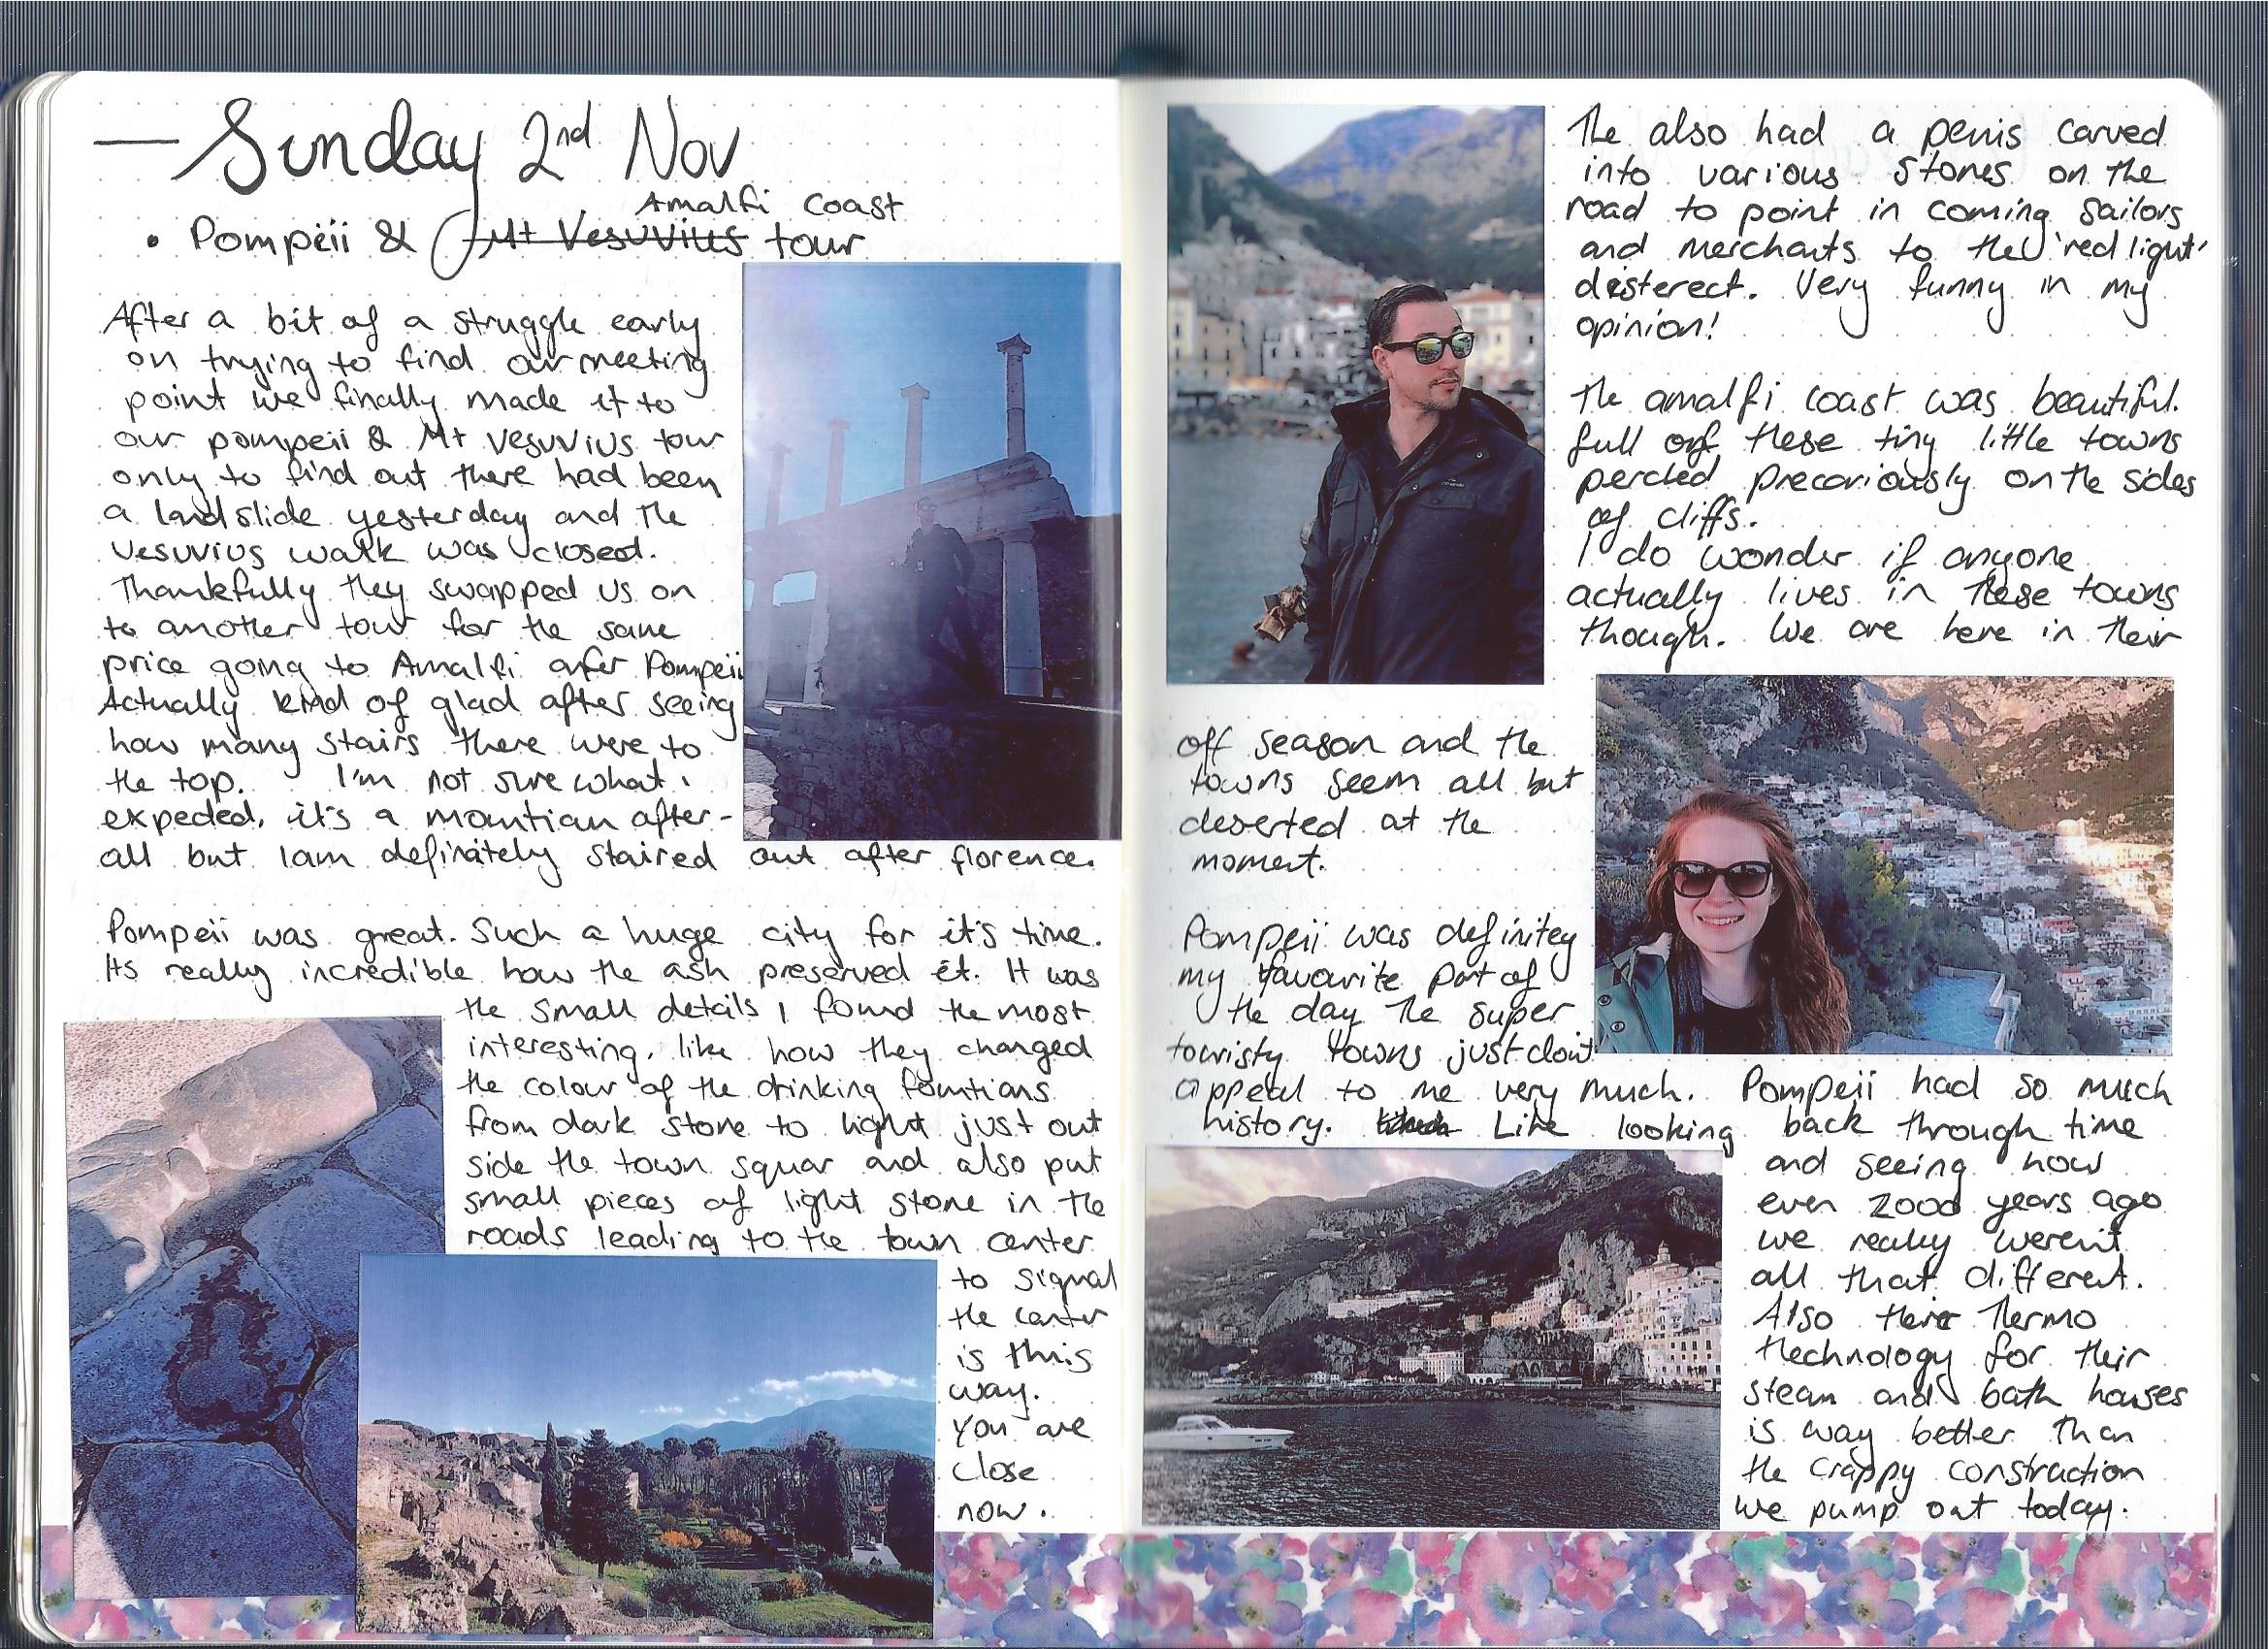 Sunday 2nd Nov
Amalfi coast
• Pompeii & Mt Vesuvius tour
After a bit of a struggle early
on trying to find our meeting
point we finally made it to
our pompeii & Mt Vesuvius tour
only to find out there had been
a landslide yesterday and the
Vesuvius walk was closed.
Thankefully they swapped us on
to another tour for the same
price going to Amalfi after Pompeii
Actually kind of glad after seeing
how many stairs there were to
the top. I'm not sure what i
expeded, it's a mountian after-
all but I am definitely staired out after florence.
Pompeii was great. Such a huge city for it's time.
Its really incredible how the ash preserved it. It was
the small details I found the most
interesting, like how they changed
the colour of the drinking fountians
from dark stone to light just out
side the town squar and also put
small pieces of light stone in the
roads leading to the town center
to signal
the center
is this
way.
You are
close
now.
The also had a penis carved
into various stones on the
road to point in coming sailors
and merchants to the 'red light'
disterect. Very funny in my
opinion!
The amalfi coast was beautiful.
full of these tiny little towns
perched precariously on the sides
of cliffs.
I do wonder if anyone
actually lives in these towns
though. We are here in their
off season and the
towns seem all but
deserted at the
moment.
Pompeii was definitey
my favourite part of
the day the super
touristy towns just don't
appeal to me very much. Pompeii had so much
history. Like looking back through time
and seeing how
even 2000 years ago
we really weren't
all that different.
Also their thermo
thechnology for their
steam and bath houses
is way better than
the crappy construction
we pump out today.